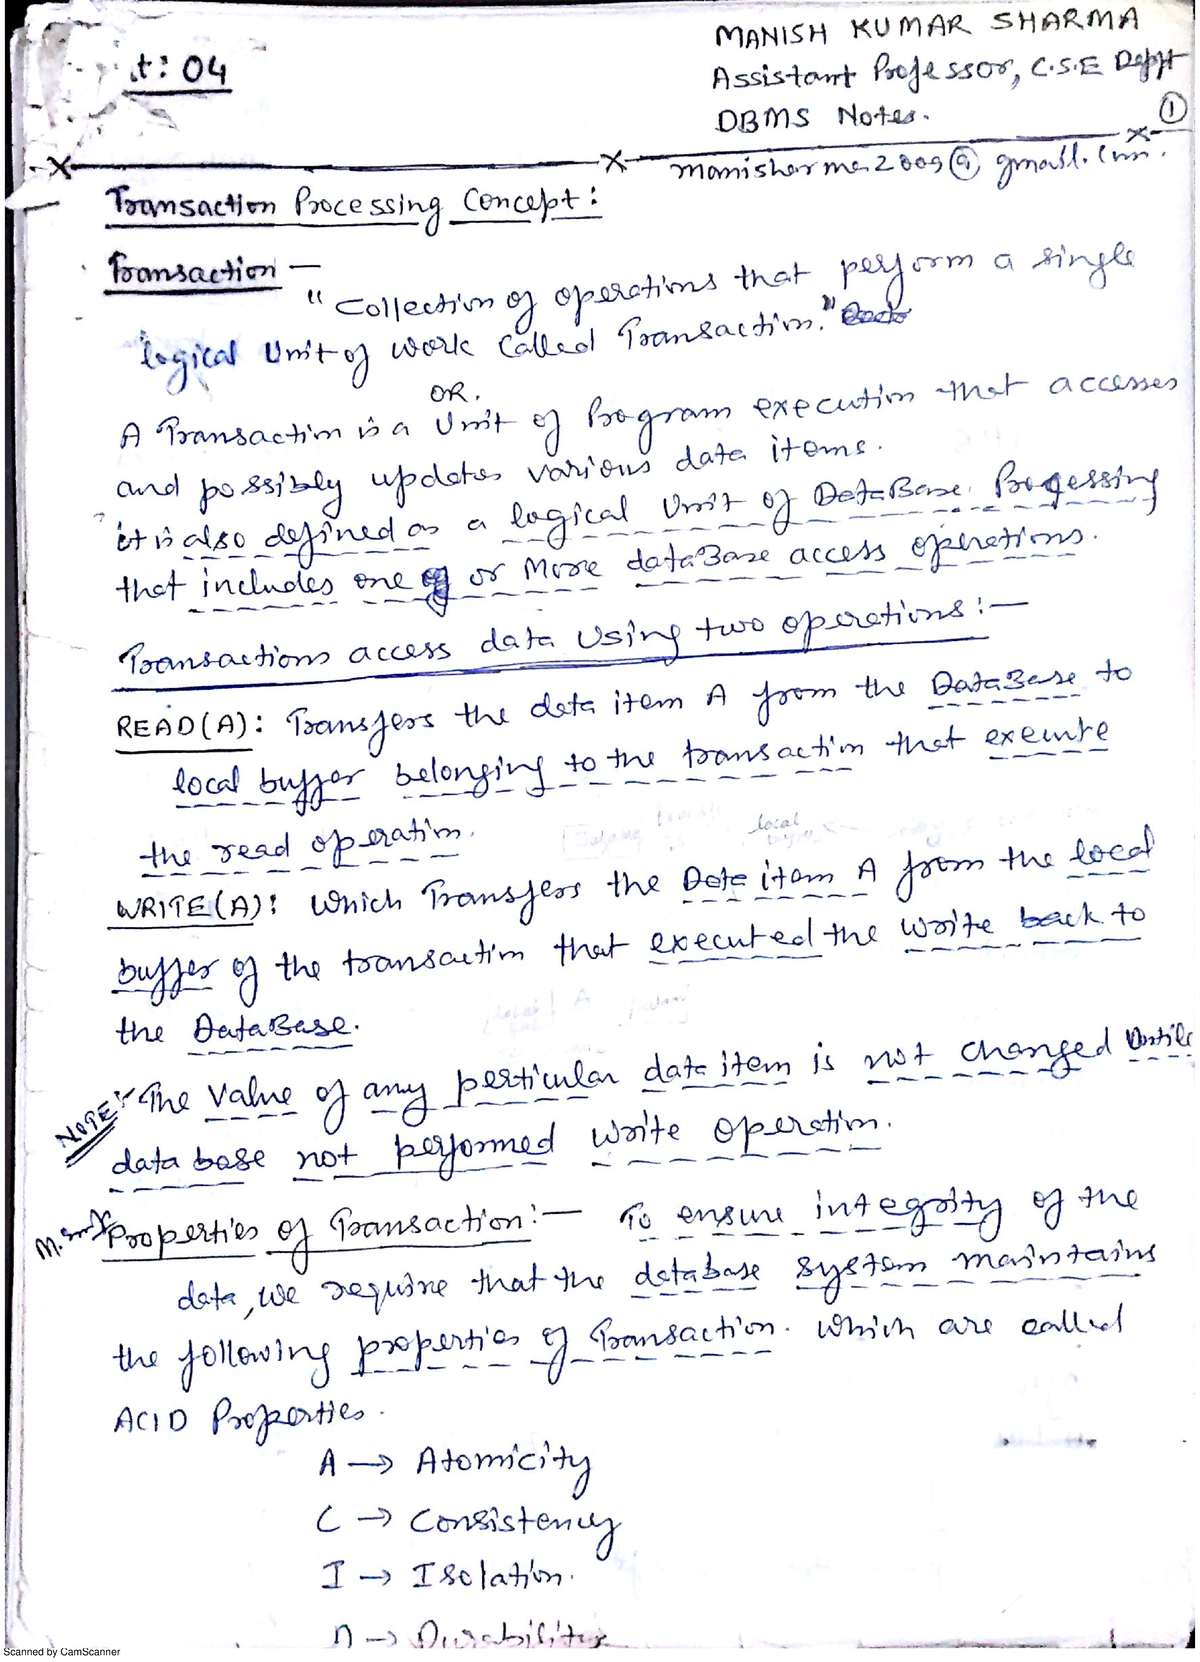 MANISH KUMAR SHARMA
t: 04
Assistant Professor, C.S.E Deptt
DBMS Notes.
1
Transaction Processing Concept:
Transaction —
"Collection of operations that perform a single
logical Unit of work called Transaction."
OR.
A Transaction is a Unit of Program execution that accesses
and possibly updates various data items.
it is also defined as a logical Unit of DataBase Processing
that includes one or more dataBase access operations.
Transactions access data Using two operations:—
READ(A): Transfers the data item A from the DataBase to
local buffer belonging to the transaction that execute
the read operation.
WRITE(A): Which Transfers the Data item A from the local
buffer of the transaction that executed the write back to
the DataBase.
NOTE:- The value of any perticular data item is not changed Untile
data base not performed write operation.
Properties of Transaction:— To ensure integrity of the
data, we require that the database system maintains
the following properties of Transaction. Which are called
ACID Properties.
A → Atomicity
C → Consistency
I → Isolation.
D → Durability
Scanned by CamScanner